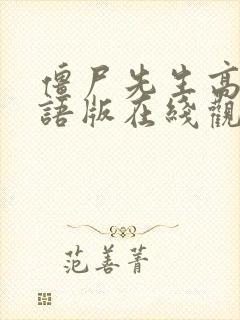 僵尸先生高
語版在綫觀
范善菁